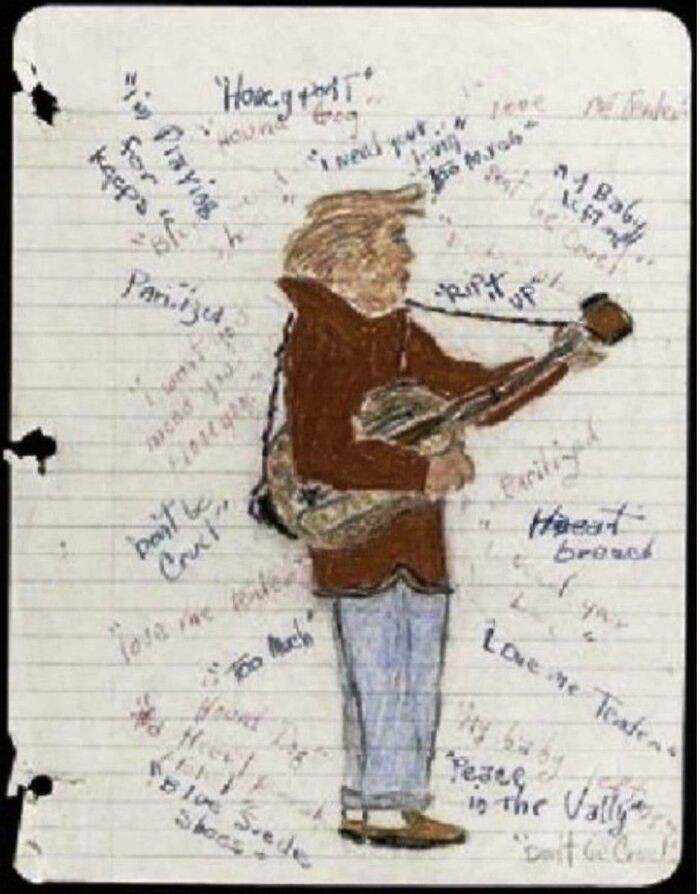 "I'm Playing
for
Keeps"
"Honey pont"
"Hound Dog"
"Love me Tender"
"I need your
loving"
"Too Much"
My Baby
left me"
"Don't be Cruel"
"RIP it up"
Parilized
"I want you
need you
I love you"
Parilized
"Don't be
Cruel"
Heart
breack
I need your
"Love me tender"
"Too Much"
Love me Tender"
"Hound Dog"
"My baby left me"
"Peace
in The Vally"
"Blue Suede
Shoes"
"Don't be Cruel"